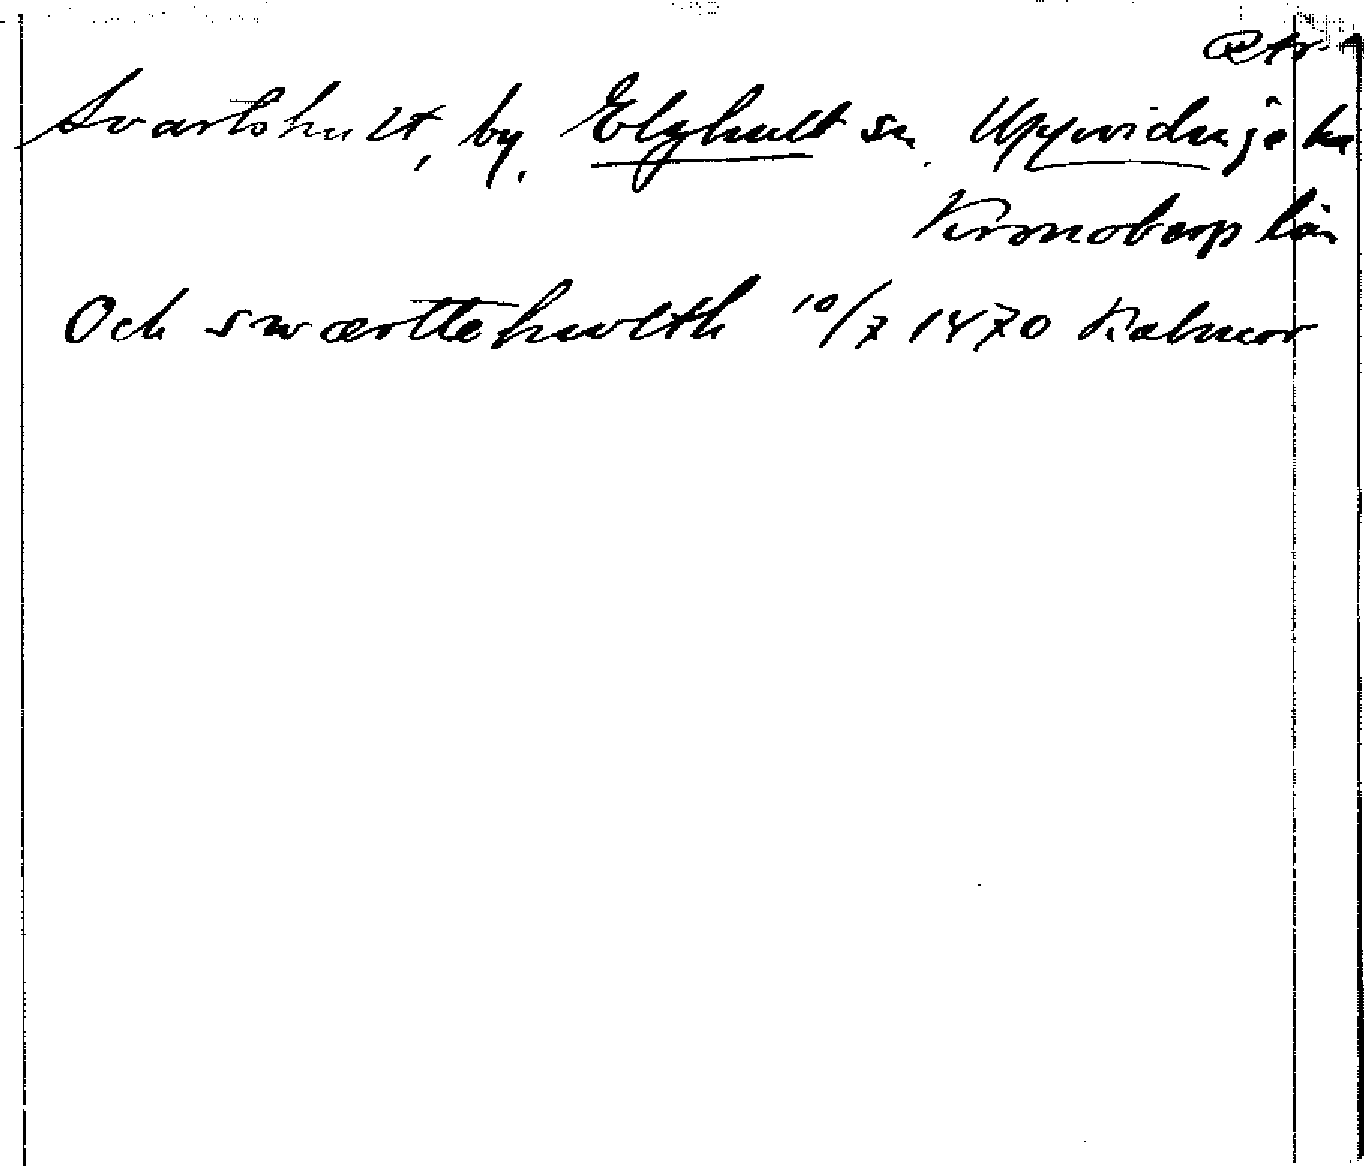 Svartshult, by, Elghult sn. Uppvidinge hd
Kronobergs län
Och swærttehwlth 10/7 1470 Kalmar